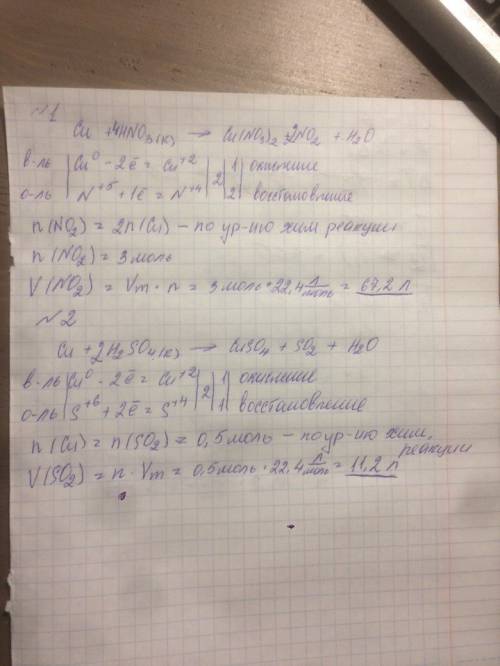 №1
Cu + 4HNO₃(к) → Cu(NO₃)₂ + 2NO₂ + H₂O
в-ль | Cu⁰ - 2ē = Cu⁺² | 2 | 1 | окисление
о-ль | N⁺⁵ + 1ē = N⁺⁴ | 2 | восстановление
n(NO₂) = 2n(Cu) – по ур-ию хим реакции
n(NO₂) = 3 моль
V(NO₂) = Vm · n = 3 моль · 22,4 л/моль = 67,2 л
№2
Cu + 2H₂SO₄(к) → CuSO₄ + SO₂ + H₂O
в-ль | Cu⁰ - 2ē = Cu⁺² | 2 | 1 | окисление
о-ль | S⁺⁶ + 2ē = S⁺⁴ | 1 | восстановление
n(Cu) = n(SO₂) = 0,5 моль – по ур-ию хим.
реакции
V(SO₂) = n · Vm = 0,5 моль · 22,4 л/моль = 11,2 л